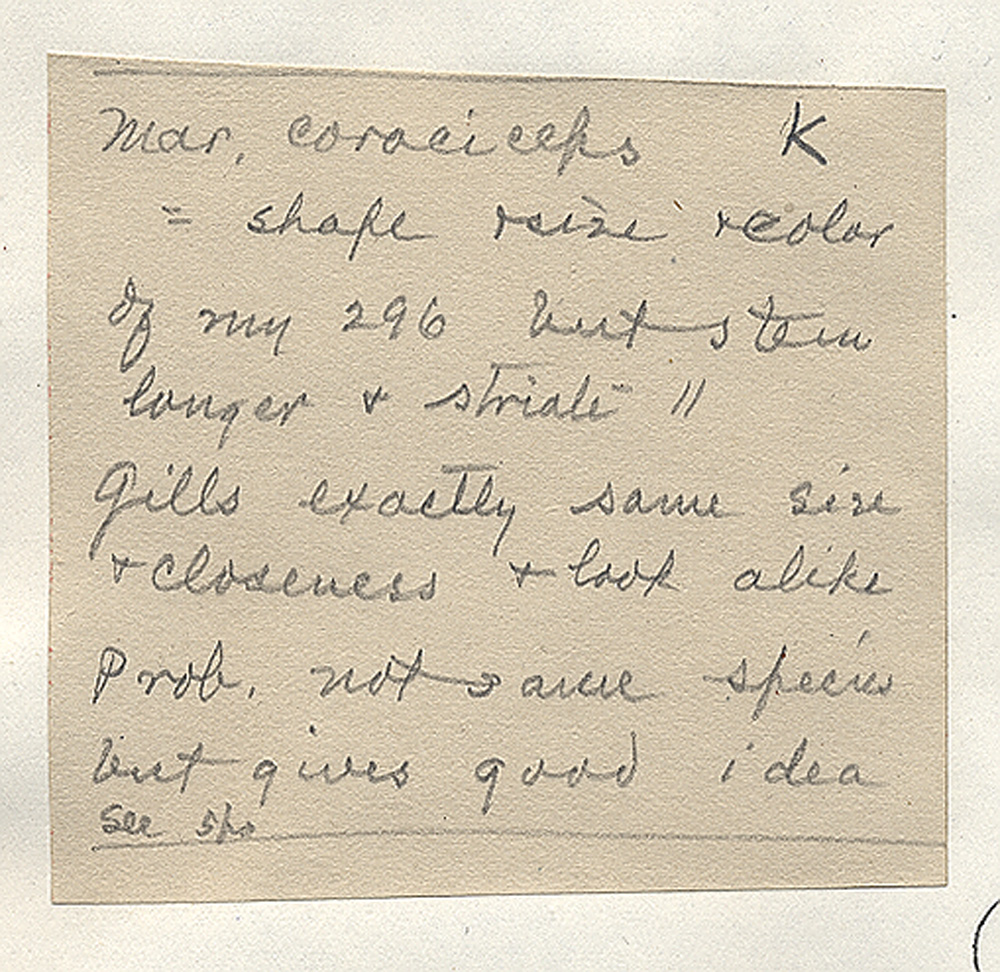 Mar. coraciceps K
= shape + size + color
of my 296 but stem
longer + striate "
Gills exactly same size
+ closeness + look alike
Prob. not same species
but gives good idea
See spo